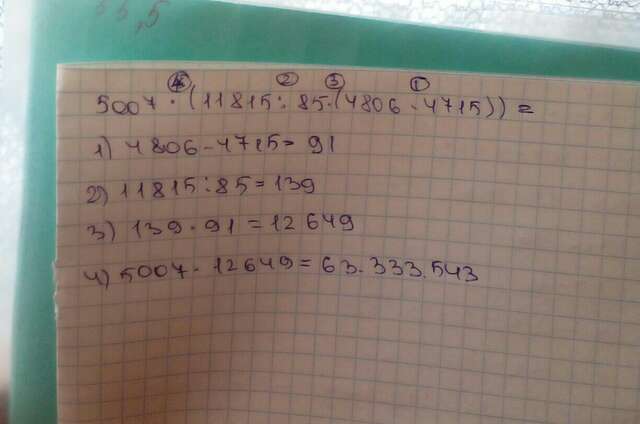 33,5
④ ② ③ ①
5007 · (11815 : 85 · (4806 - 4715)) =
1) 4806 - 4715 = 91
2) 11815 : 85 = 139
3) 139 · 91 = 12649
4) 5007 · 12649 = 63.333.543